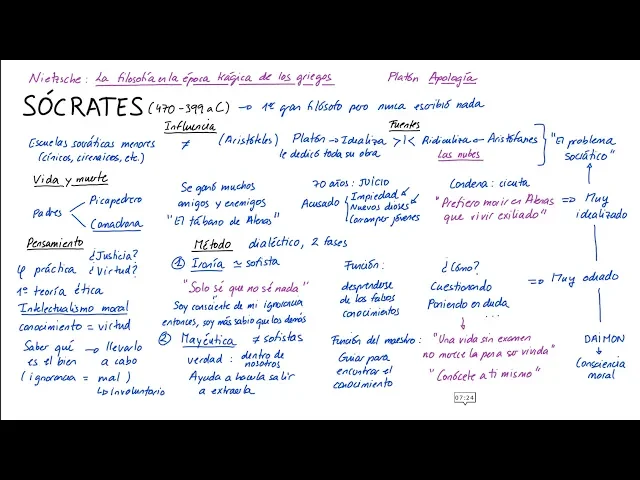 Nietzsche: La filosofía en la época trágica de los griegos
Platón Apología
SÓCRATES (470-399 a C) → 1er gran filósofo pero nunca escribió nada
Influencia
Fuentes
Escuelas socráticas menores ≠ (Aristóteles)
(cínicos, cirenaicos, etc.)
Platón → Idealiza >|< Ridiculiza ← Aristófanes
le dedicó toda su obra
Las nubes
"El problema
socrático"
Vida y muerte
Padres
Picapedrero
Comadrona
Se ganó muchos
amigos y enemigos
"El tábano de Atenas"
70 años: JUICIO
Acusado
Impiedad
Nuevos dioses
Corromper jóvenes
Condena: cicuta
"Prefiero morir en Atenas
que vivir exiliado"
⇒ Muy
idealizado
Pensamiento
φ práctica
¿Justicia?
¿Virtud?
1ª teoría ética
Intelectualismo moral
conocimiento = virtud
Saber qué → llevarlo
es el bien a cabo
(ignorancia = mal)
↳ Involuntario
Método dialéctico, 2 fases
1 Ironía ≃ sofista
"Solo sé que no sé nada"
Soy consciente de mi ignorancia
entonces, soy más sabio que los demás
Función:
desprenderse
de los falsos
conocimientos
¿Cómo?
Cuestionando
Poniendo en duda
...
⇒ Muy odiado
2 Mayéutica ≠ sofistas
verdad: dentro de
nosotros
Ayuda a hacerla salir
a extraerla
Función del maestro:
Guiar para
encontrar el
conocimiento
"Una vida sin examen
no merece la pena ser vivida"
"Conócete a ti mismo"
DAIMON
Consciencia
moral
07:24